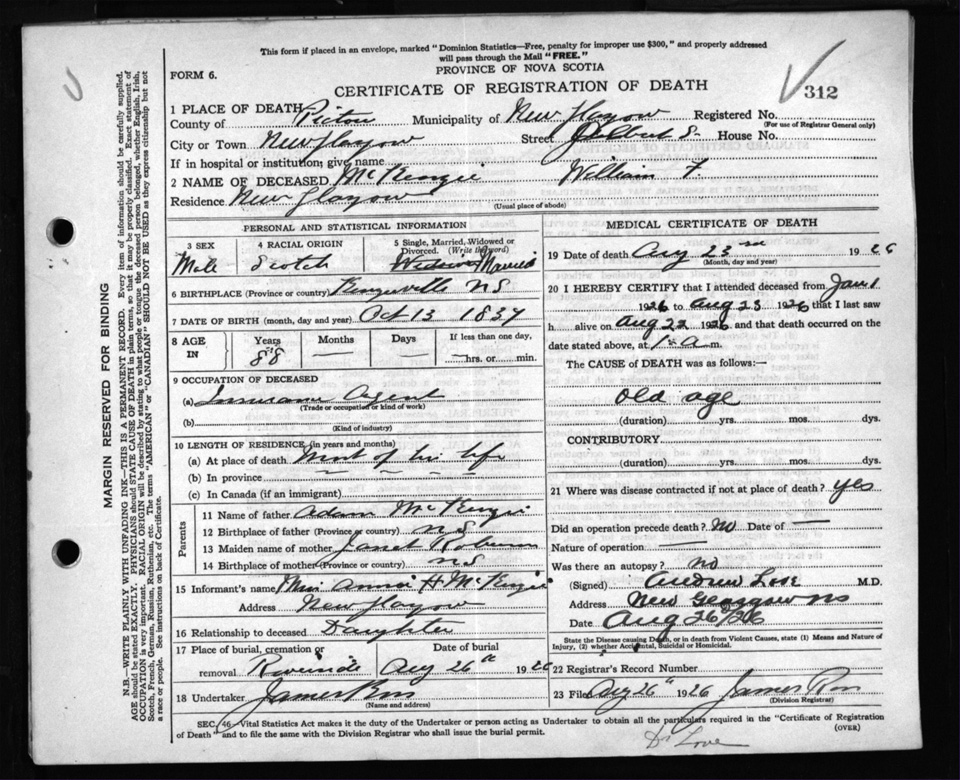 This form if placed in an envelope, marked "Dominion Statistics—Free, penalty for improper use $300," and properly addressed
will pass through the Mail "FREE."
PROVINCE OF NOVA SCOTIA
FORM 6.
CERTIFICATE OF REGISTRATION OF DEATH
312
1 PLACE OF DEATH
County of Pictou Municipality of New Glasgow Registered No.
(For use of Registrar General only)
City or Town New Glasgow Street House No.
If in hospital or institution, give name
2 NAME OF DECEASED McKenzie William F.
Residence New Glasgow
(Usual place of abode)
PERSONAL AND STATISTICAL INFORMATION
3 SEX Male
4 RACIAL ORIGIN Scotch
5 Single, Married, Widowed or Divorced. (Write the word) Widower Married
6 BIRTHPLACE (Province or country) N S
7 DATE OF BIRTH (month, day and year) Oct 13 1837
8 AGE IN Years 88 Months — Days — If less than one day, —hrs. or min.
9 OCCUPATION OF DECEASED
(a) Insurance Agent
(Trade or occupation or kind of work)
(b)
(Kind of industry)
10 LENGTH OF RESIDENCE (in years and months)
(a) At place of death Most of his life
(b) In province
(c) In Canada (if an immigrant)
Parents
11 Name of father Adam McKenzie
12 Birthplace of father (Province or country) N S
13 Maiden name of mother Janet
14 Birthplace of mother (Province or country) N S
15 Informant's name Miss Annie H McKenzie
Address New Glasgow
16 Relationship to deceased Daughter
17 Place of burial, cremation or removal Riverside
Date of burial Aug 26th 1926
18 Undertaker James
(Name and address)
MEDICAL CERTIFICATE OF DEATH
19 Date of death Aug 23rd 1926
(Month, day and year)
20 I HEREBY CERTIFY that I attended deceased from Jan 1
1926 to Aug 23 1926 that I last saw
h alive on Aug 22 1926 and that death occurred on the
date stated above, at 1 a m.
The CAUSE OF DEATH was as follows:
Old age
(duration) yrs. mos. dys.
CONTRIBUTORY
(duration) yrs. mos. dys.
21 Where was disease contracted if not at place of death? Yes
Did an operation precede death? No Date of —
Nature of operation —
Was there an autopsy? no
(Signed) Andrew Love M.D.
Address New Glasgow NS
Date Aug 26/26
State the Disease causing Death, or in death from Violent Causes, state (1) Means and Nature of
Injury, (2) whether Accidental, Suicidal or Homicidal.
22 Registrar's Record Number
23 Filed Aug 26th 1926 James
(Division Registrar)
SEC. 46 Vital Statistics Act makes it the duty of the Undertaker or person acting as Undertaker to obtain all the particulars required in the "Certificate of Registration
of Death" and to file the same with the Division Registrar who shall issue the burial permit.
(OVER)
Dr Love
MARGIN RESERVED FOR BINDING
N.B.—WRITE PLAINLY WITH UNFADING INK—THIS IS A PERMANENT RECORD. Every item of information should be carefully supplied.
AGE should be stated EXACTLY. PHYSICIANS should STATE CAUSE OF DEATH in plain terms, so that it may be properly classified. Exact statement of
OCCUPATION is very important. RACIAL ORIGIN will be described by stating to what people or tongue the deceased person belonged, whether English, Irish,
Scotch, French, German, Russian, Ruthenian, etc. The terms "AMERICAN" or "CANADIAN" SHOULD NOT BE USED as they express citizenship but not
a race or people. See instructions on back of Certificate.